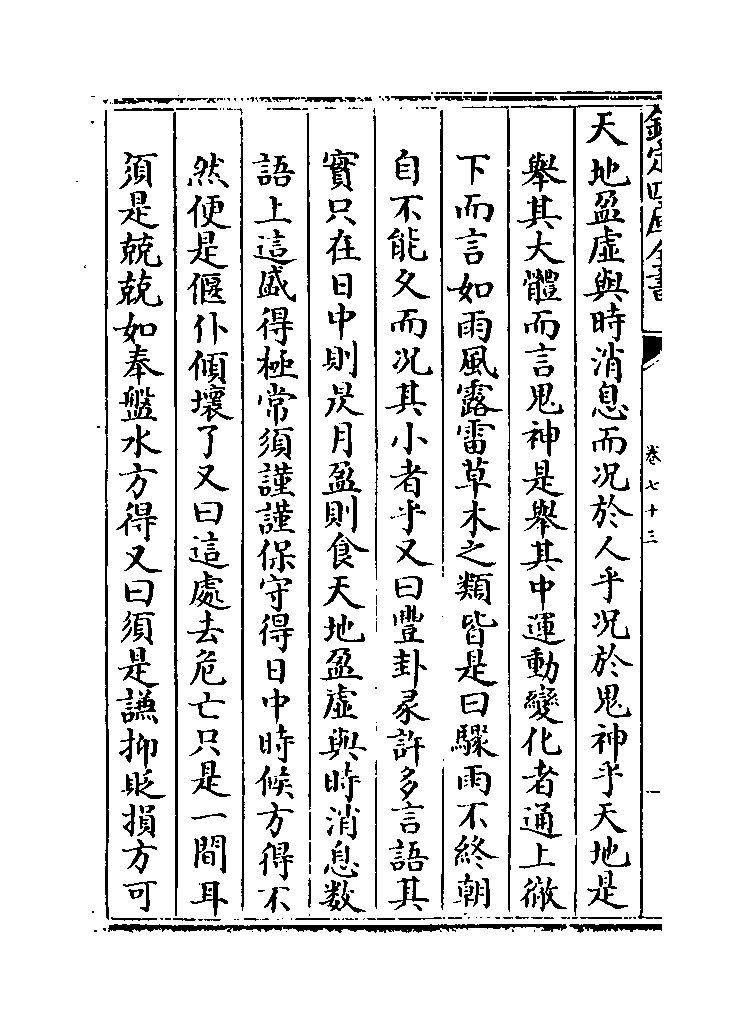 欽定四庫全書
卷七十三
天地盈虛與時消息而况於人乎况於鬼神乎天地是
舉其大體而言鬼神是舉其中運動變化者通上徹
下而言如雨風露雷草木之類皆是曰驟雨不終朝
自不能久而况其小者乎又曰豐卦彖許多言語其
實只在日中則昃月盈則食天地盈虛與時消息数
語上這盛得極常須謹謹保守得日中時候方得不
然便是偃仆傾壞了又曰這處去危亡只是一間耳
須是兢兢如奉盤水方得又曰須是謙抑貶損方可